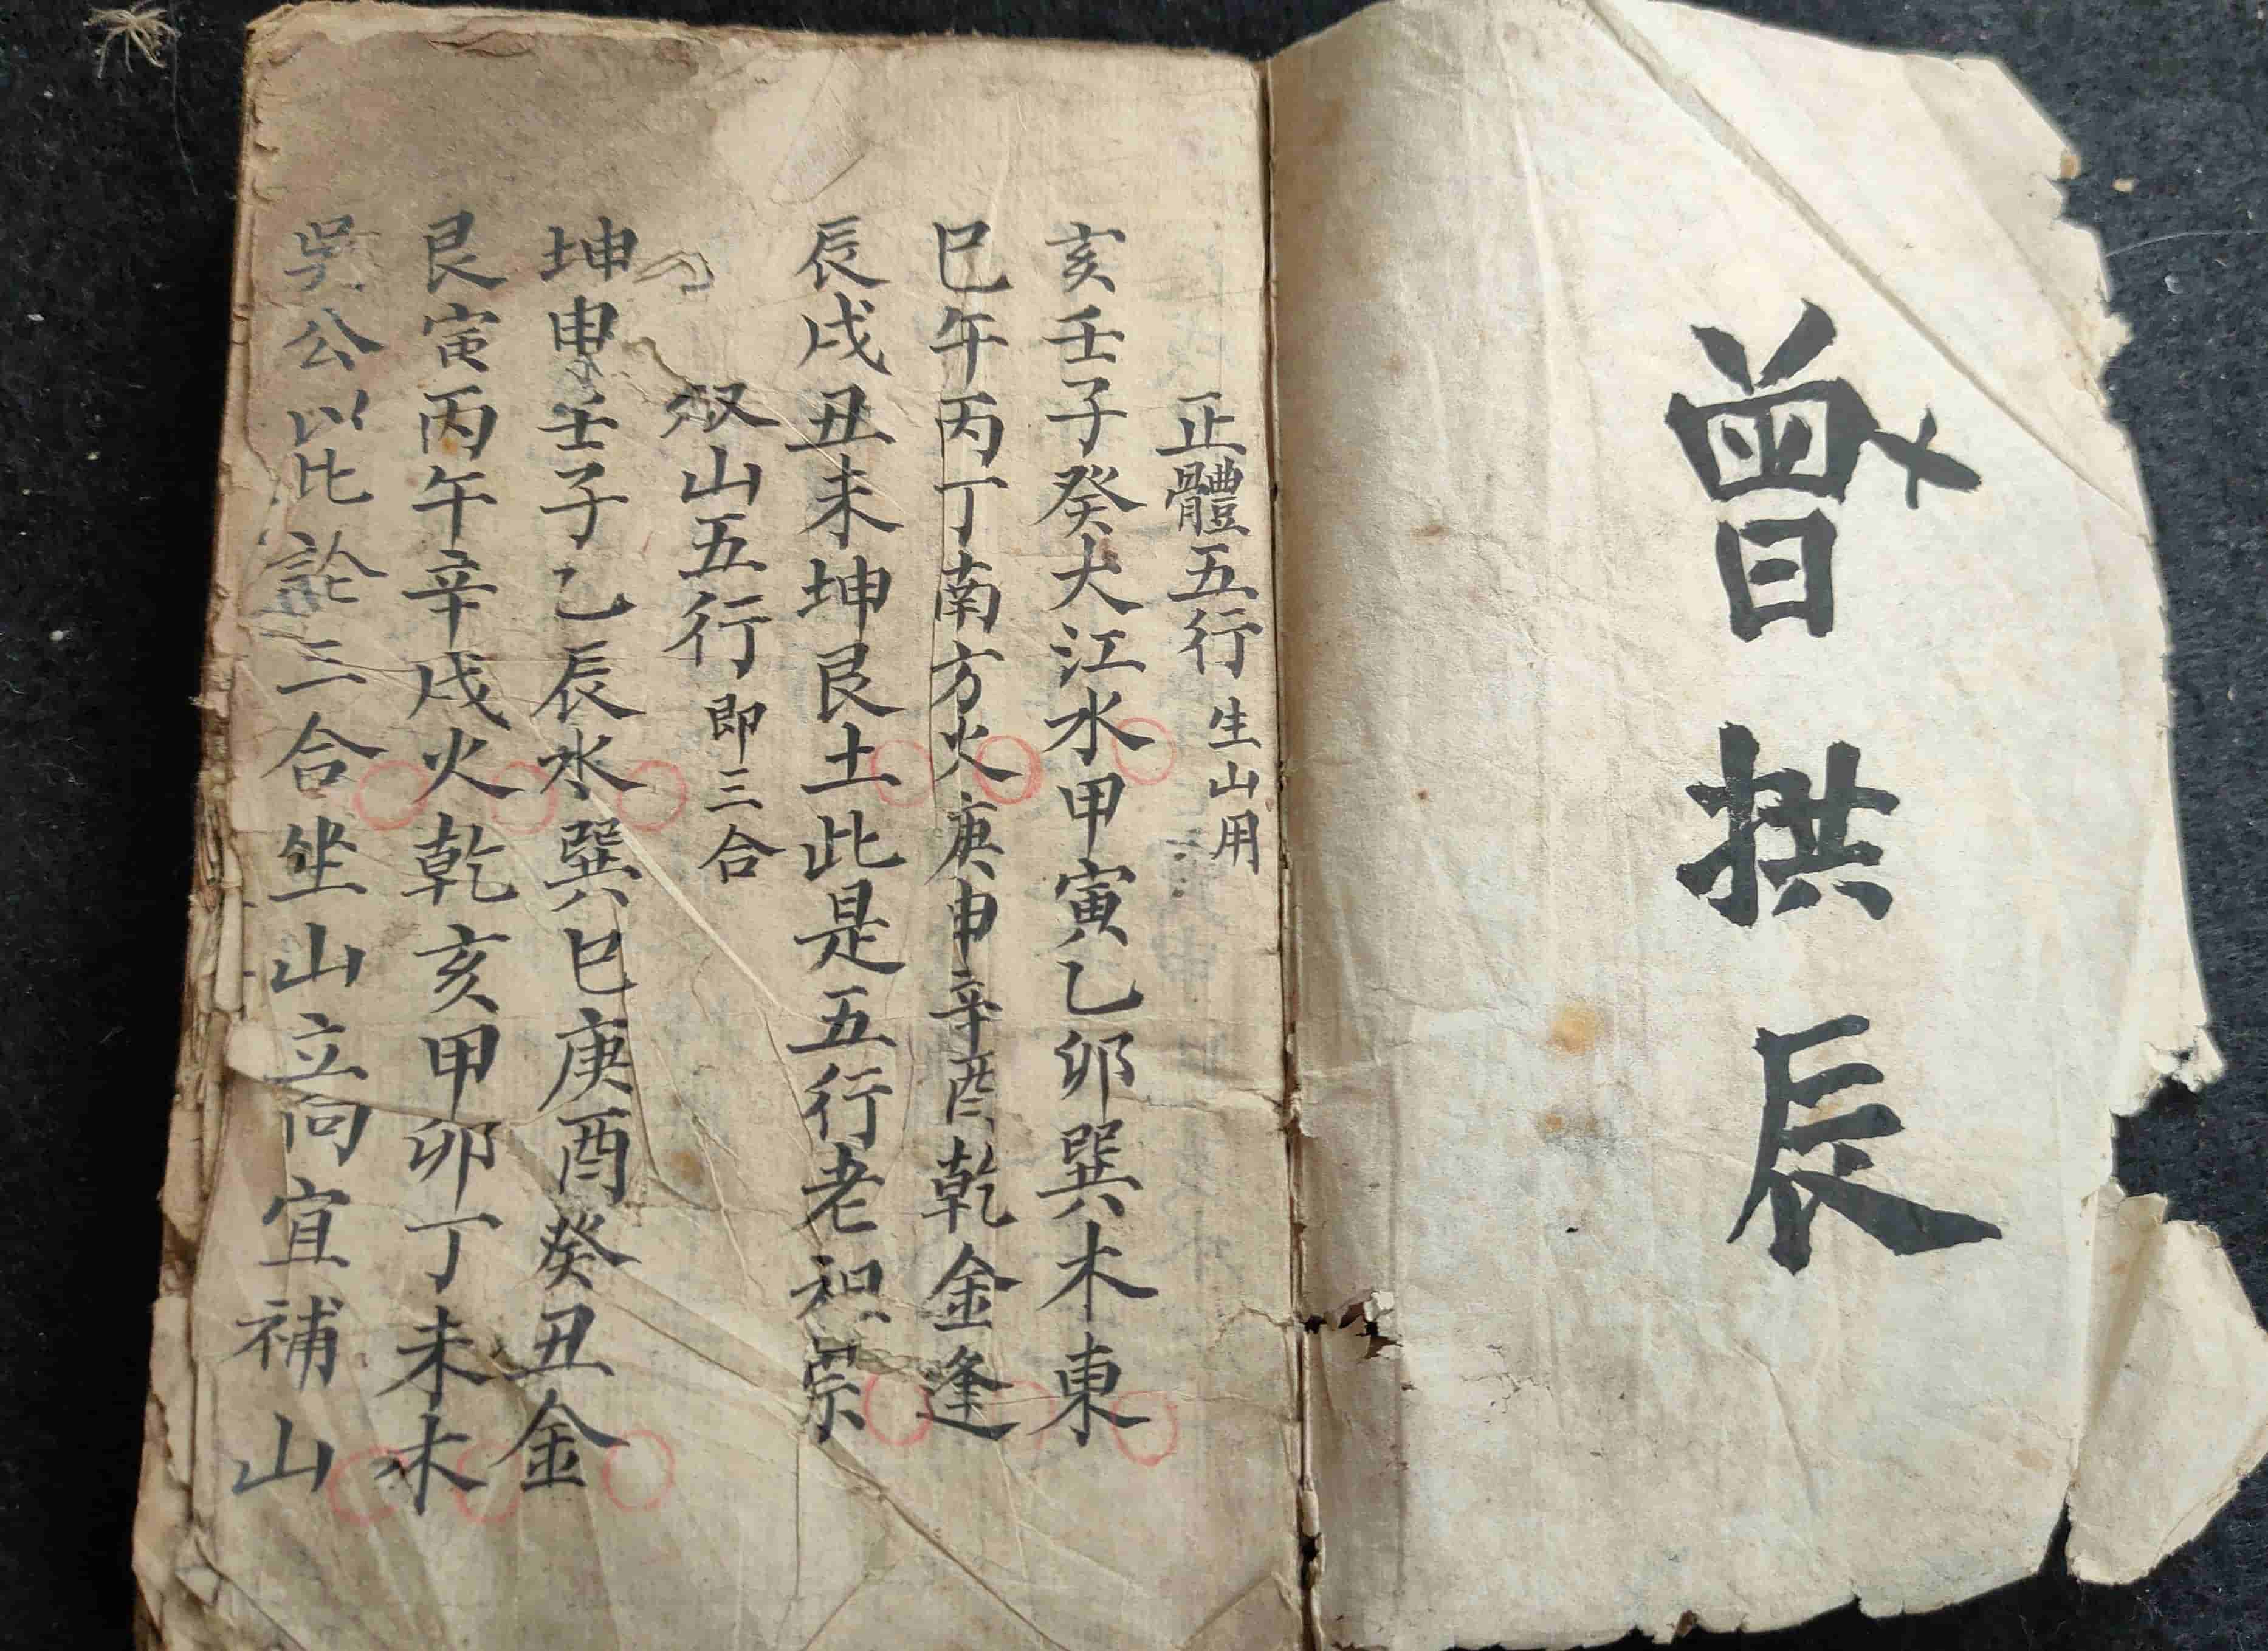 曾拱辰
正體五行 生山用
亥壬子癸大江水甲寅乙卯巽木東
巳午丙丁南方火庚申辛酉乾金逢
辰戌丑未坤艮土此是五行老祖宗
双山五行 即三合
坤申壬子乙辰水巽巳庚酉癸丑金
艮寅丙午辛戌火乾亥甲卯丁未木
吳公以此論三合坐山立向宜補山